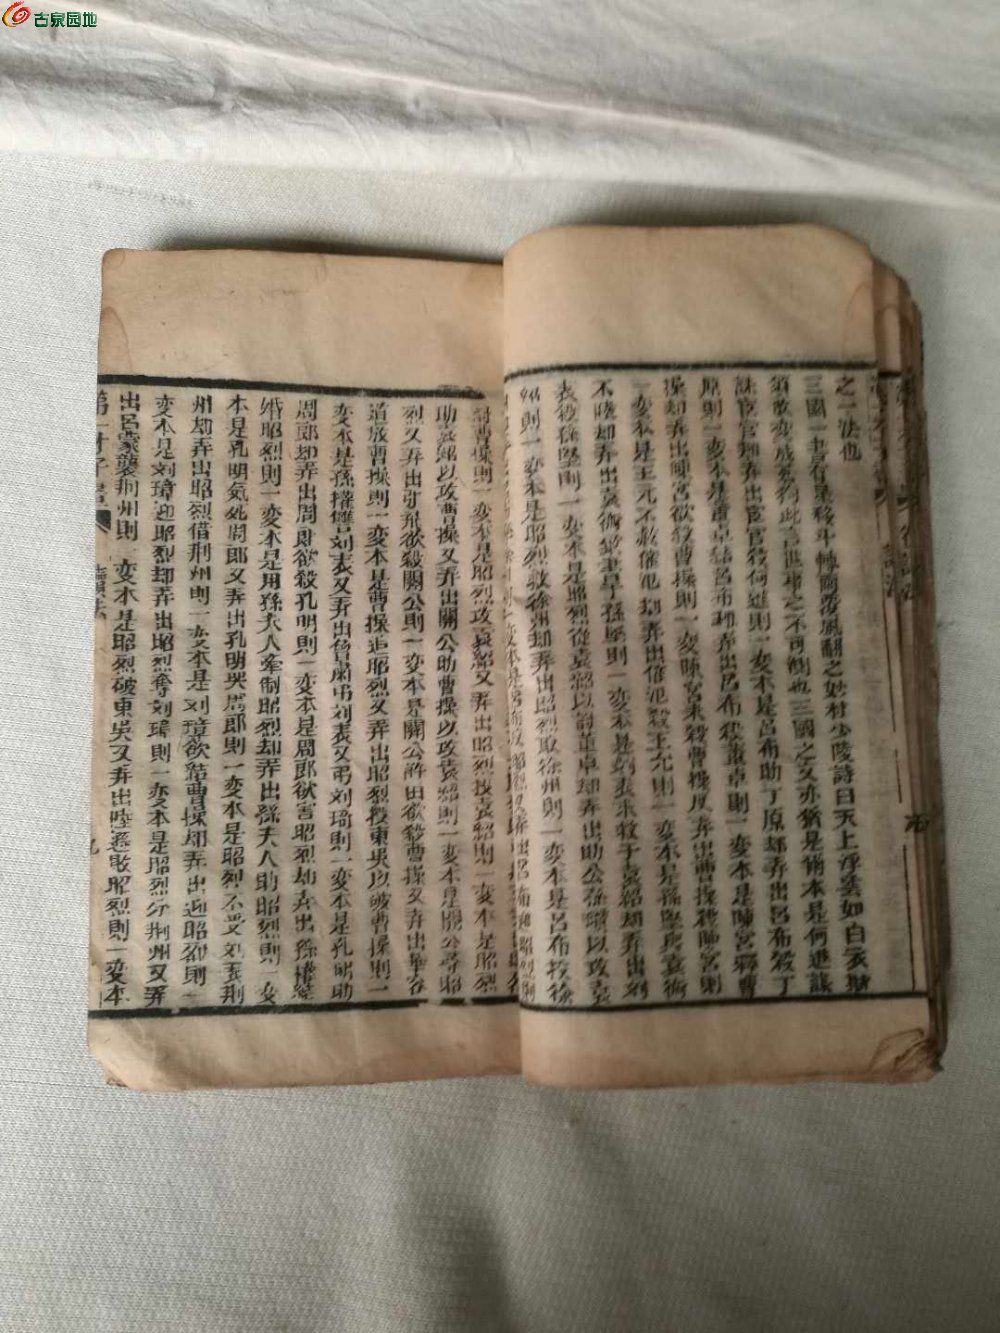 古泉园地
之一法也
三國一書有星移斗轉雨覆風翻之妙杜少陵詩曰天上浮雲如白衣斯
須改變成蒼狗此言世事之不可測也三國之文亦猶是爾本是何進謀
誅宦官却弄出宦官殺何進則一変本是呂布助丁原却弄出呂布殺丁
原則一変本是董卓結呂布却弄出呂布殺董卓則一変本是陳宮釋曹
操却弄出陳宮欲殺曹操則一変陳宮未殺曹操反弄出曹操殺陳宮則
一変本是王允不赦催汜却弄出催汜殺王允則一変本是孫堅與袁術
不睦却弄出袁術致書于孫堅則一変本是刘表求救于袁紹却弄出刘
表殺孫堅則一変本是昭烈從袁紹以討董卓却弄出助公孫瓚以攻袁
紹則一変本是昭烈救徐州却弄出昭烈取徐州則一変本是呂布投徐
討曹操則一変本是昭烈攻袁紹又弄出昭烈投袁紹則一変本是昭烈
助袁紹以攻曹操又弄出關公助曹操以攻袁紹則一変本是關公尋昭
烈又弄出張飛欲殺關公則一変本是關公許田欲殺曹操又弄出華容
道放曹操則一変本是曹操追昭烈又弄出昭烈投東吳以破曹操則一
変本是孫權讐刘表又弄出魯肅弔刘表又弔刘琦則一変本是孔明助
周郎却弄出周郎欲殺孔明則一変本是周郎欲害昭烈却弄出孫權結
婚昭烈則一変本是用孫夫人牽制昭烈却弄出孫夫人助昭烈則一変
本是孔明氣死周郎又弄出孔明哭周郎則一変本是昭烈不受刘表荊
州却弄出昭烈借荊州則一変本是刘璋欲結曹操却弄出迎昭烈則一
変本是刘璋迎昭烈却弄出昭烈奪刘璋則一変本是昭烈分荊州又弄
出呂蒙襲荊州則一変本是昭烈破東吳又弄出陸遜敗昭烈則一変本
第一才子書 讀法 九